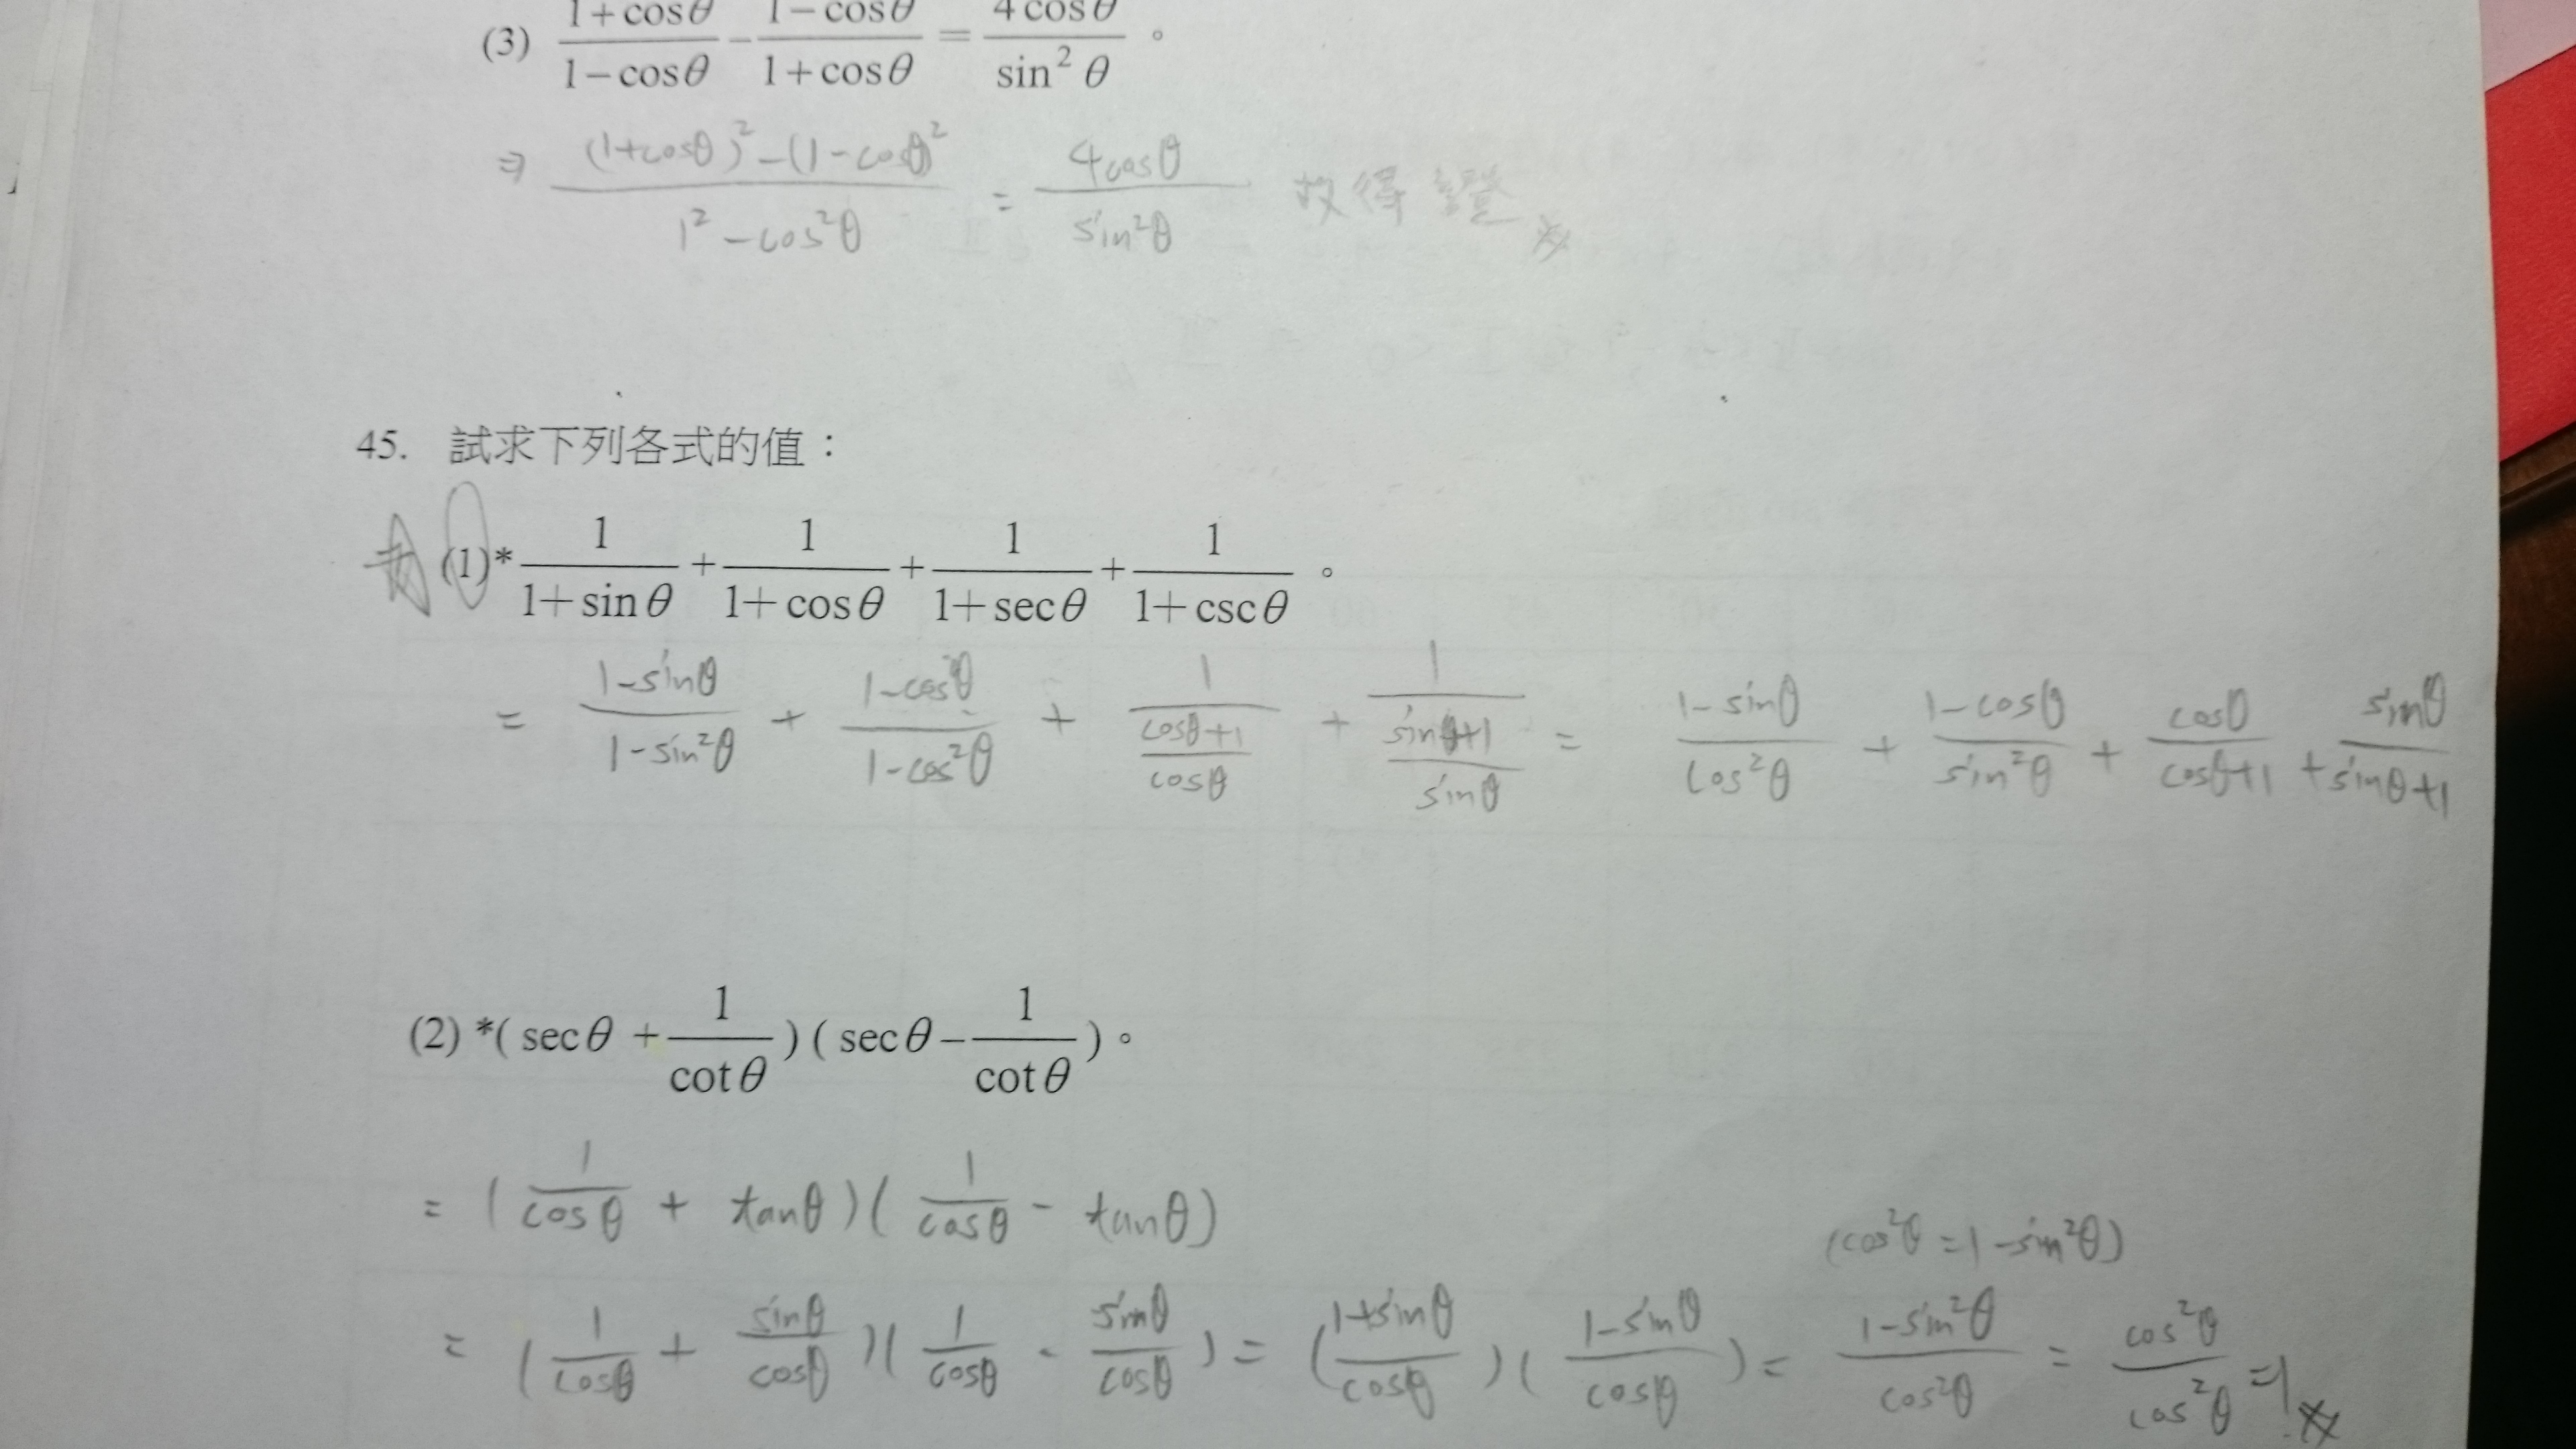 (3) \frac{1+cosθ}{1−cosθ} − \frac{1−cosθ}{1+cosθ} = \frac{4cosθ}{sin²θ}。
⇒ \frac{(1+cosθ)²−(1−cosθ)²}{1²−cos²θ} = \frac{4cosθ}{sin²θ} 故得證
45. 試求下列各式的值：
(1)* \frac{1}{1+sinθ} + \frac{1}{1+cosθ} + \frac{1}{1+secθ} + \frac{1}{1+cscθ}。
= \frac{1−sinθ}{1−sin²θ} + \frac{1−cosθ}{1−cos²θ} + \frac{1}{\frac{cosθ+1}{cosθ}} + \frac{1}{\frac{sinθ+1}{sinθ}} = \frac{1−sinθ}{cos²θ} + \frac{1−cosθ}{sin²θ} + \frac{cosθ}{cosθ+1} + \frac{sinθ}{sinθ+1}
(2) *( secθ + \frac{1}{cotθ} ) ( secθ − \frac{1}{cotθ} )。
= ( \frac{1}{cosθ} + tanθ )( \frac{1}{cosθ} − tanθ )
(cos²θ = 1−sin²θ)
= ( \frac{1}{cosθ} + \frac{sinθ}{cosθ} )( \frac{1}{cosθ} − \frac{sinθ}{cosθ} ) = ( \frac{1+sinθ}{cosθ} )( \frac{1−sinθ}{cosθ} ) = \frac{1−sin²θ}{cos²θ} = \frac{cos²θ}{cos²θ} = 1